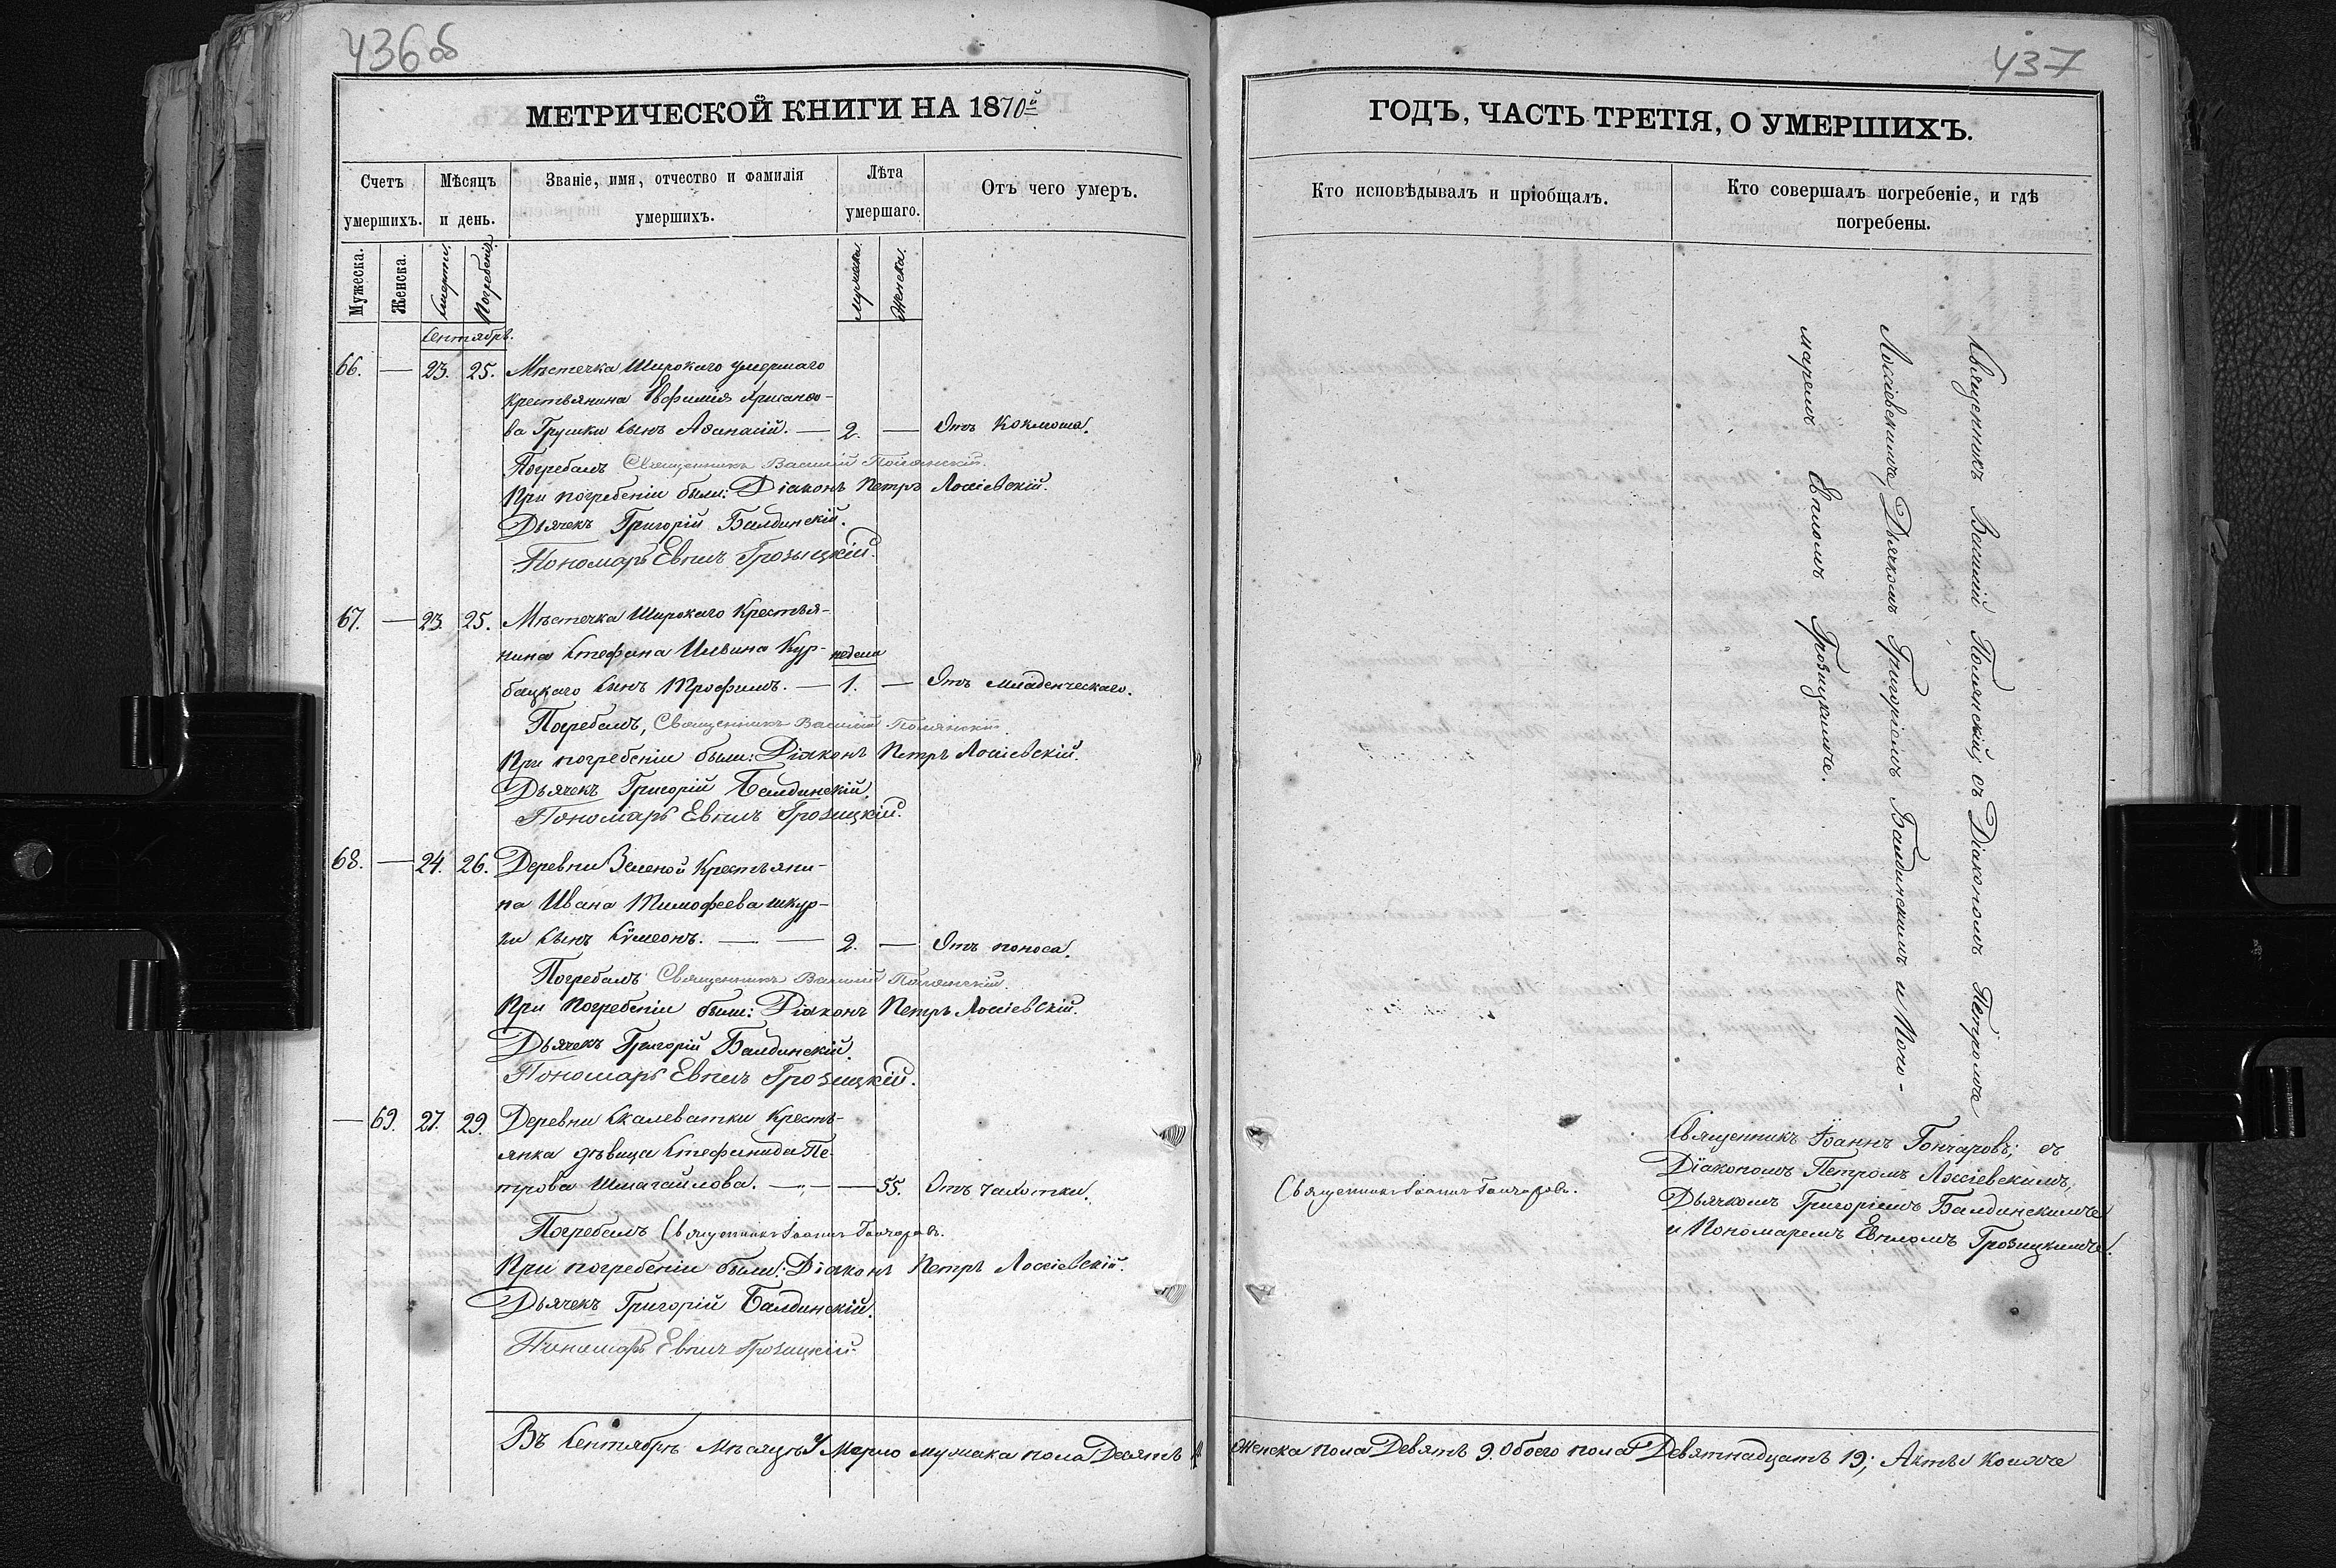 436 об
МЕТРИЧЕСКОЙ КНИГИ НА 1870й
Счетъ умершихъ.
Мѣсяцъ и день.
Званіе, имя, отчество и фамилія умершихъ.
Лѣта умершаго.
Отъ чего умеръ.
Мужеска.
Женска.
Смерти.
Погребенія.
Мужеска.
Женска.
Сентябрь.
66. — 23. 25. Мѣстечка Широкаго умершаго
крестьянина Евфимія
ва Грушки сынъ Аѳанасій. — 2. — Отъ Коклюша.
Погребалъ Священникъ Василій Полянскій.
При погребеніи были: Діаконъ Петръ Лосіевскій.
Дьячекъ Григорій Балдинскій.
Пономарь Евпилъ Грозицкій.
67. — 23. 25. Мѣстечка Широкаго Крестья-
нина Стефана Ильина Кур- недель
бацкаго сынъ Трофимъ. — 1. — Отъ младенческаго.
Погребалъ, Священникъ Василій Полянскій
При погребеніи были: Діаконъ Петръ Лосіевскій.
Дьячекъ Григорій Балдинскій.
Пономарь Евпилъ Грозицкій.
68. — 24. 26. Деревни Зеленой Крестьяни-
на Ивана Тимофеева Шкур-
ки сынъ Сѵмеонъ. — — 2. — Отъ поноса.
Погребалъ Священникъ Василій Полянскій.
При Погребеніи были: Діаконъ Петръ Лосіевскій.
Дьячекъ Григорій Балдинскій.
Пономарь Евпилъ Грозицкій.
— 69. 27. 29. Деревни Скалеватки Кресть-
янка дѣвица Стефанида Пе-
трова Шмагайлова. — — — 55. Отъ чахотки.
Погребалъ Священникъ Іоаннъ Гончаровъ.
При погребеніи были: Діаконъ Петръ Лосіевскій.
Дьячекъ Григорій Балдинскій.
Пономарь Евпилъ Грозицкій.
Въ Сентябрѣ Мѣсяцѣ Умерло мужска пола Десять
437
ГОДЪ, ЧАСТЬ ТРЕТІЯ, О УМЕРШИХЪ.
Кто исповѣдывалъ и пріобщалъ.
Кто совершалъ погребеніе, и гдѣ
погребены.
Священникъ Василій Полянскій, съ Діакономъ Петромъ
Лосіевскимъ, Дьячкомъ Григоріемъ Балдинскимъ и Поно-
маремъ Евпломъ Грозицкимъ.
Священникъ Іоаннъ Гончаровъ.
Священникъ Іоаннъ Гончаровъ; съ
Діакономъ Петромъ Лосіевскимъ,
Дьячкомъ Григоріемъ Балдинскимъ
и Пономаремъ Евпломъ Грозицкимъ.
Женска пола Девять 9. Обоего пола Девятнадцать 19; Акты